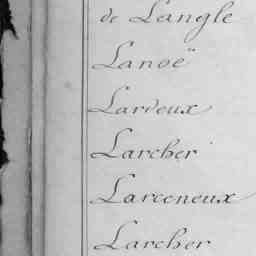 de Langle
Lanoë
Lardeux
Larcher
Larceneux
Larcher